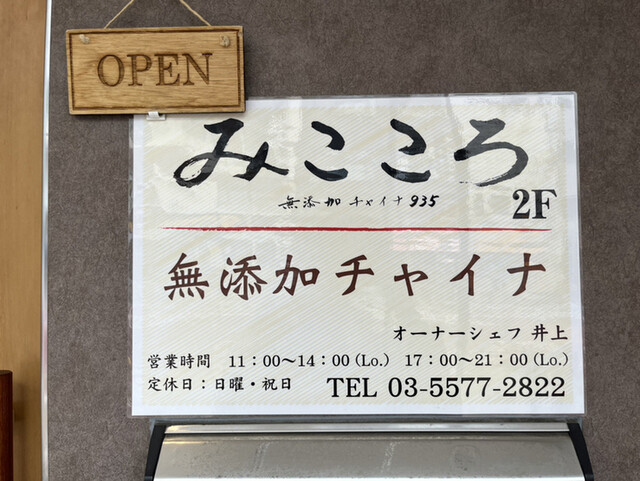 OPEN
みこころ
無添加 チャイナ 935
2F
無添加チャイナ
オーナーシェフ 井上
営業時間 11：00～14：00（Lo.） 17：00～21：00（Lo.）
定休日：日曜・祝日
TEL 03-5577-2822